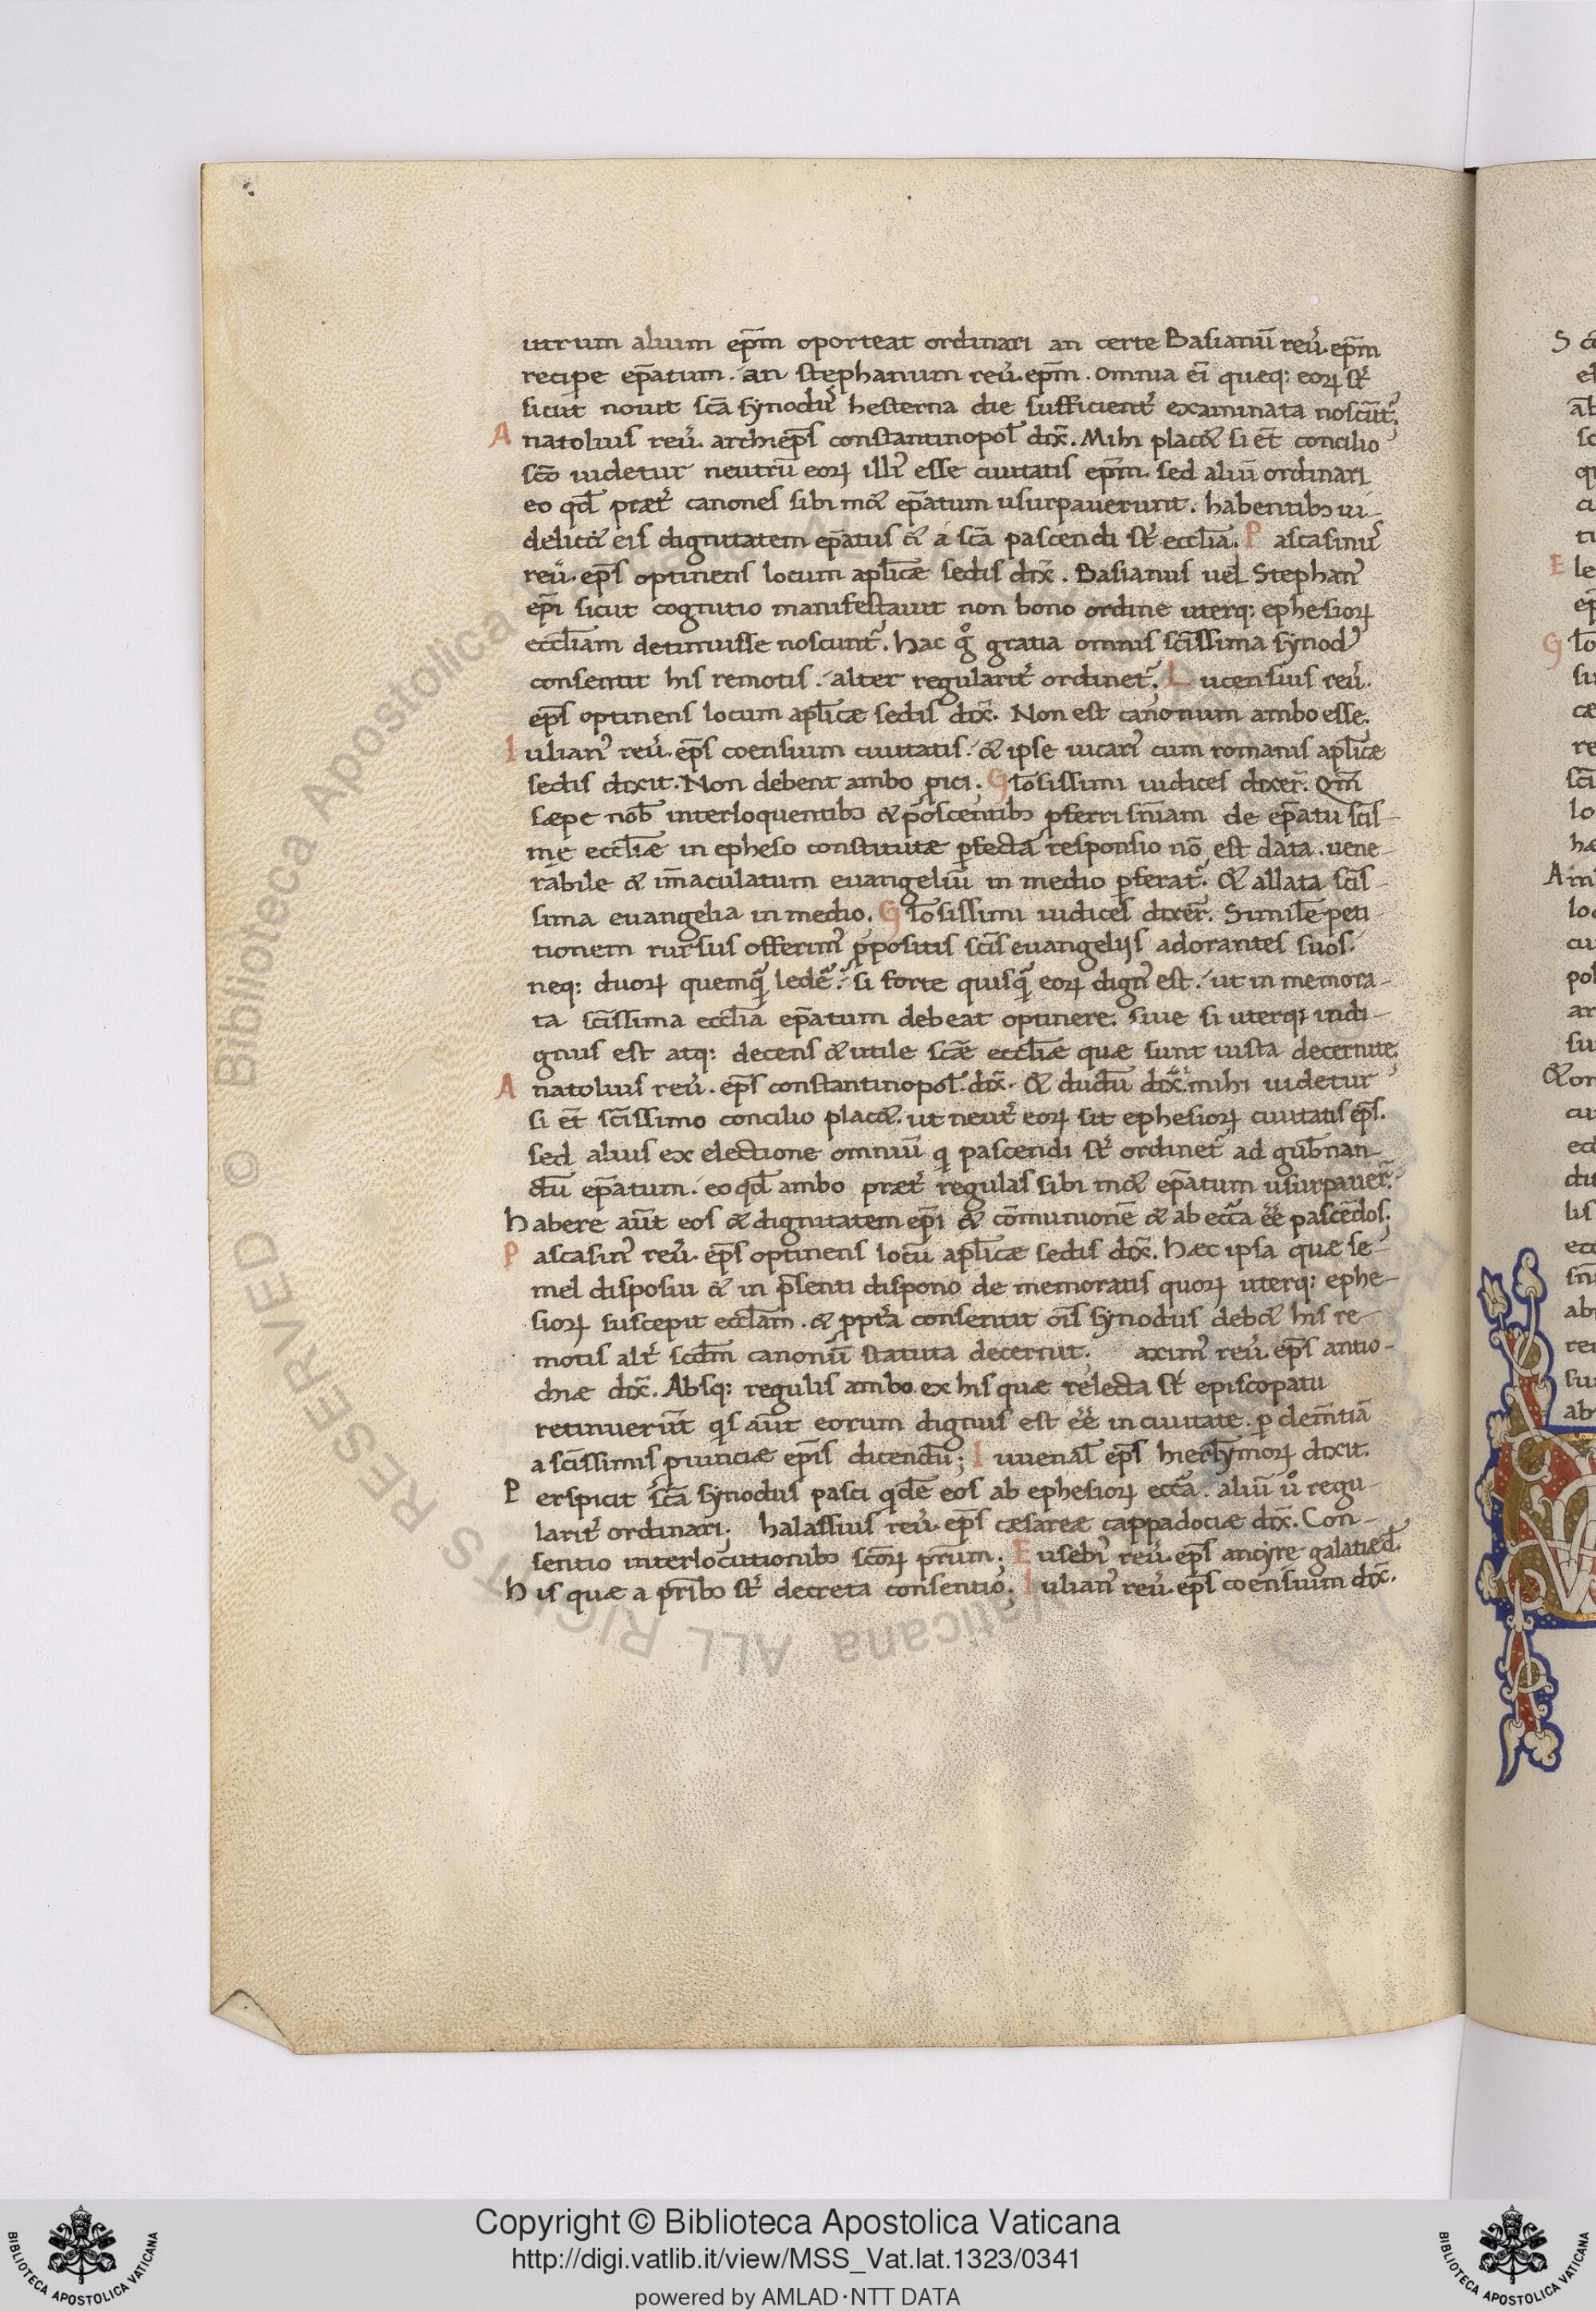 utrum alium ep̄m oporteat ordinari an certe Basianū reū. ep̄m
recipe ep̄atum. an stephanum reū. ep̄m. omnia ei̅ queq: eoꝝ st̅
sicut nouit sc̄a synodꝰ hesterna die sufficient̅ examinata noscunt̅;
Anatolius reū. archiep̄s constantinopol̄ dix̄. Mihi plac& si et̄ concilio
sc̄o uidetur neutrū eoꝝ illiꝰ esse ciuitatis ep̄m. sed aliū ordinari
eo qd̄ præt̅ canones sibi m& ep̄atum usurpauerunt. habentibꝫ ui-
delic& eis dignitatem ep̄atus & a sc̄a pascendi st̅ eccl̄ia. Pascasinuꝰ
reū. ep̄s optinens locum apl̄icæ sedis dix̄. Basianus uel Stephanꝰ
ep̄i sicut cognitio manifestauit non bono ordine uterq: ephesioꝝ
eccl̄iam detinuisse noscunt̅. hac gͦ gratia omnis sc̄issima synodꝰ
consentit his remotis. alter regularit̅ ordinet̅. Lucensius reū.
ep̄s optinens locum apl̄icæ sedis dix̄. Non est canonum ambo esse.
Iulianꝰ reū. ep̄s coensium ciuitatis. & ipse uicariꝰ cum romanis apl̄icæ
sedis dixit. Non debent ambo ꝑici. Gl̄osissimi iudices dixer̄. Qm̄
sæpe nob̄ interloquentibꝫ & poscentibꝫ ꝓferri sn̄iam de ep̄atu sc̄is-
me eccl̄iæ in epheso constitutæ ꝑfecta responsio nō est data. uene-
rabile & im̄aculatum euangeliū in medio ꝓferat̅. & allata sc̄is-
sima euangelia in medio. Gl̄osissimi iudices dixer̄. Similē peti-
tionem rursus offerimꝰ ꝓpositis sc̄is euangelijs adorantes suos.
neq: duoꝝ quemqͣ ledē. si forte quisqͣ eoꝝ dignꝰ est. ut in memora-
ta sc̄issima eccl̄ia ep̄atum debeat optinere. siue si uterq: indi-
gnus est atq: decens & utile sc̄æ eccl̄iæ quæ sunt iusta decernite.
Anatolius reū. ep̄s constantinopol̄. dix̄. & dudū dix̄. mihi uidetur
si et̄ sc̄issimo concilio plac&. ut neut̅ eoꝝ sit ephesioꝝ ciuitatis ep̄s.
sed alius ex electione omniū qi pascendi st̅ ordinet̅ ad gub̄nan-
dū ep̄atum. eo qd̄ ambo præt̅ regulas sibi m& ep̄atum usurpauer̄.
habere aūt eos & dignitatem ep̄i & cōmunionē & ab ecc̄a ee̅ pascēdos;
Pascasinꝰ reū. ep̄s optinens locū apl̄icæ sedis dix̄. hæc ipsa quæ se-
mel disposui & in p̄senti dispono de memoratis quoꝝ uterq: ephe-
sioꝝ suscepit eccl̄am. & ꝓpt̅a consentit ois̄ synodus deb& his re-
motis alt̅ scd̄m canonū statuta decernit; aximꝰ reū. ep̄s antio-
chiæ dix̄. Absq: regulis ambo ex his quæ relecta st̅ episcopatu
retinuerūt qis aūt eorum dignus est ee̅ in ciuitate. ꝑ clem̄tiā
a sc̄issimis ꝓuinciæ ep̄is dicendū; Iuuenal̄ ep̄s hierl̄ymoꝝ dixit.
Perspicit sc̄a synodus pasci qdē eos ab ephesioꝝ ecc̄a. aliū uͦ regu-
larit̅ ordinari; halassius reū. ep̄s cæsareæ cappadociæ dix̄. Con-
sentio interlocutionibꝫ sc̄oꝝ pr̄um; Eusebiꝰ reū. ep̄s ancyre galatie d̄.
his quæ a pr̄ibꝫ st̅ decreta consentio; Iulianꝰ reū. ep̄s coensium dix̄.
Copyright © Biblioteca Apostolica Vaticana
http://digi.vatlib.it/view/MSS_Vat.lat.1323/0341
powered by AMLAD·NTT DATA